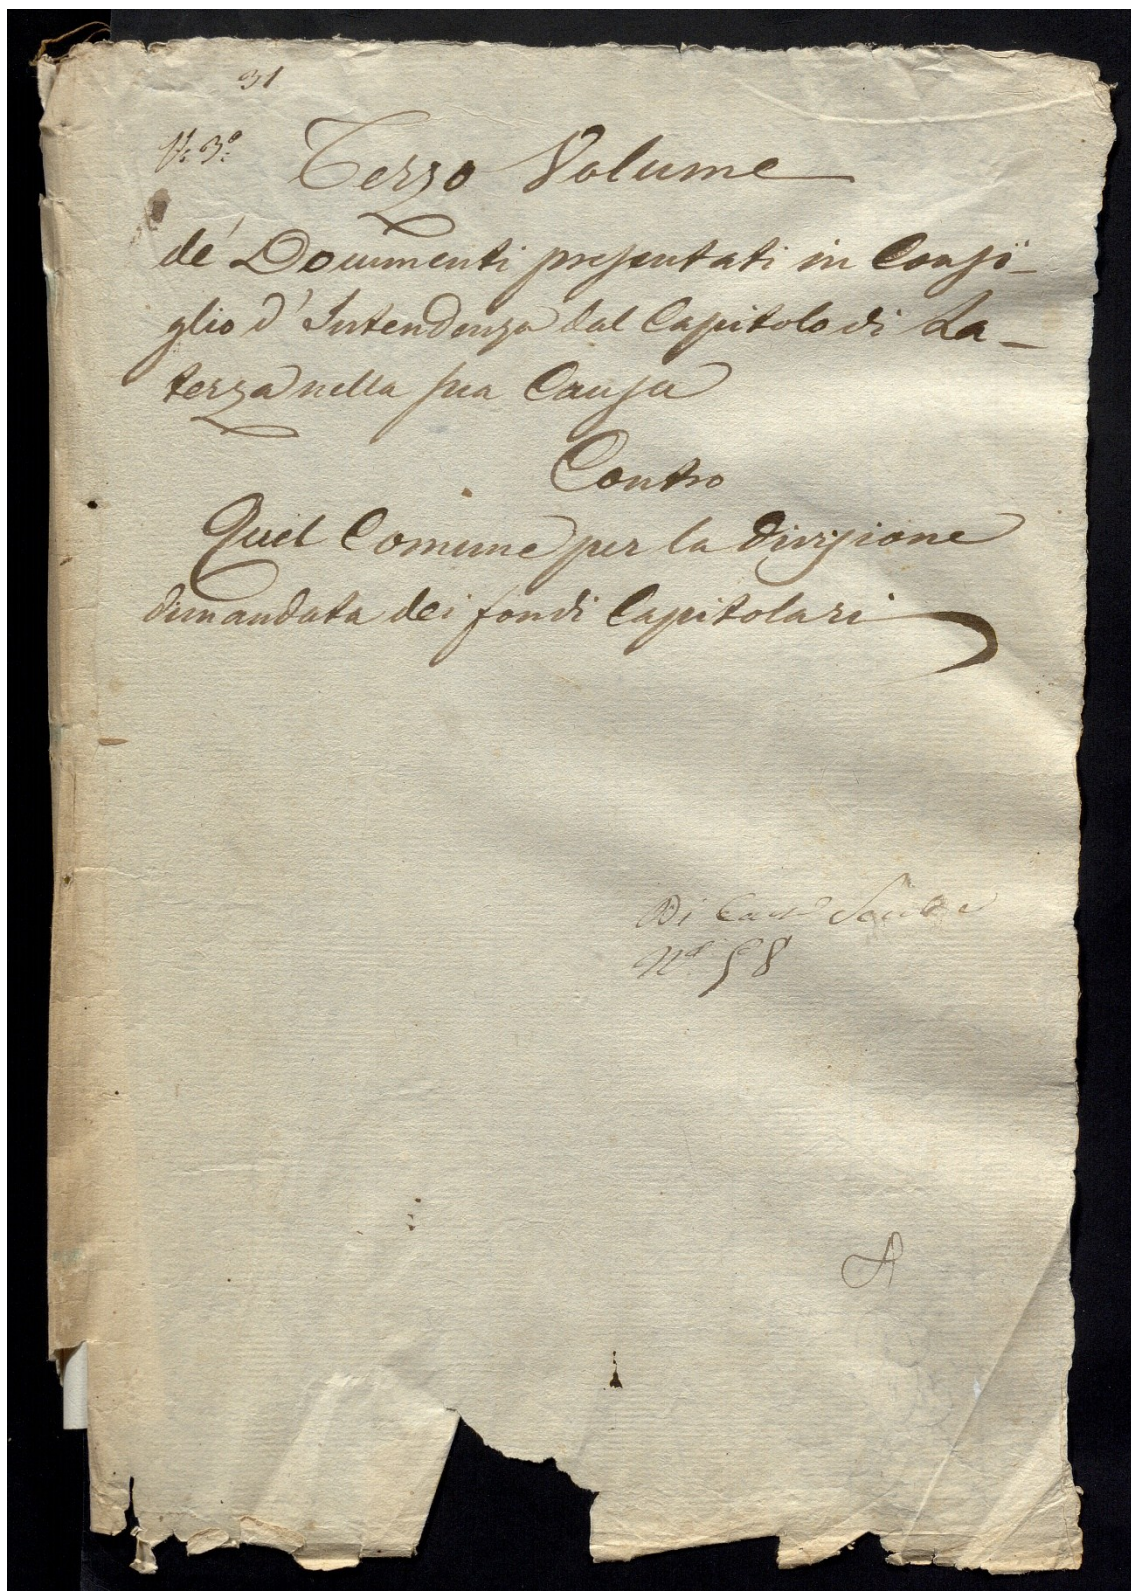 31
V: 3º:
Terzo Volume
de' Documenti presentati in Consi-
glio d' Intendenza dal Capitolo di La-
terza nella sua Causa
Contro
Quel Comune per la divisione
dimandata dei fondi Capitolari
Di
Nº 58
A